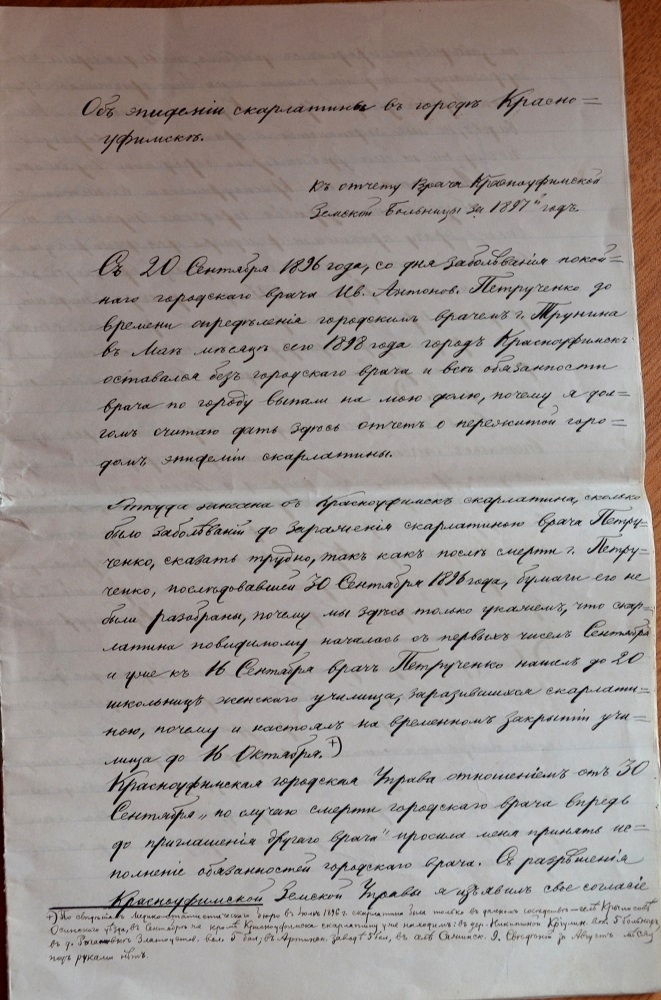 Объ эпидеміи скарлатины въ городѣ Красно=
уфимскѣ.
къ отчету Врача Красноуфимской
Земской Больницы за 1897й годъ.
Съ 20 Сентября 1896 года, со дня заболѣванія покой=
наго городскаго врача Ив. Антонов. Петрученко до
времени опредѣленія городскимъ врачемъ г. Трунина
въ Маѣ мѣсяцѣ сего 1898 года городъ Красноуфимскъ
оставался безъ городскаго врача и всѣ обязанности
врача по городу выпали на мою долю, почему я дол=
гомъ считаю дать здѣсь отчетъ о пережитой горо=
домъ эпидеміи скарлатины.
Откуда занесена въ Красноуфимскъ скарлатина, сколько
было заболѣваній до зараженія скарлатиною врача Петру-
ченко, сказать трудно, такъ какъ послѣ смерти г. Петру-
ченко, послѣдовавшей 30 Сентября 1896 года, бумаги его не
были разобраны, почему мы здѣсь только укажемъ, что скар-
латина повидимому началась съ первыхъ чиселъ Сентября
и уже къ 16 Сентября врачъ Петрученко нашелъ до 20
школьницъ женскаго училища, заразившихся скарлати-
ною, почему и настоялъ на временномъ закрытіи учи-
лища до 16 Октября. +)
Красноуфимская городская Управа отношеніемъ отъ 30
Сентября „по случаю смерти городскаго врача впредь
до приглашенія другаго врача" просила меня принять ис=
полненіе обязанностей городскаго врача. Съ разрѣшенія
Красноуфимской Земской Управы я изъявилъ свое согласіе
+) По бюро въ 1896 г. скарлатина была только въ
Осинскаго уѣзда, въ Сентябрѣ на кромѣ Красноуфимска скарлатину уже находимъ: въ дер. 5 больныхъ,
въ д. Златоустов. вол. 5 бол; въ Артинск. заводѣ 5 бол, въ селѣ за Августъ мѣсяцъ
подъ руками нѣтъ.